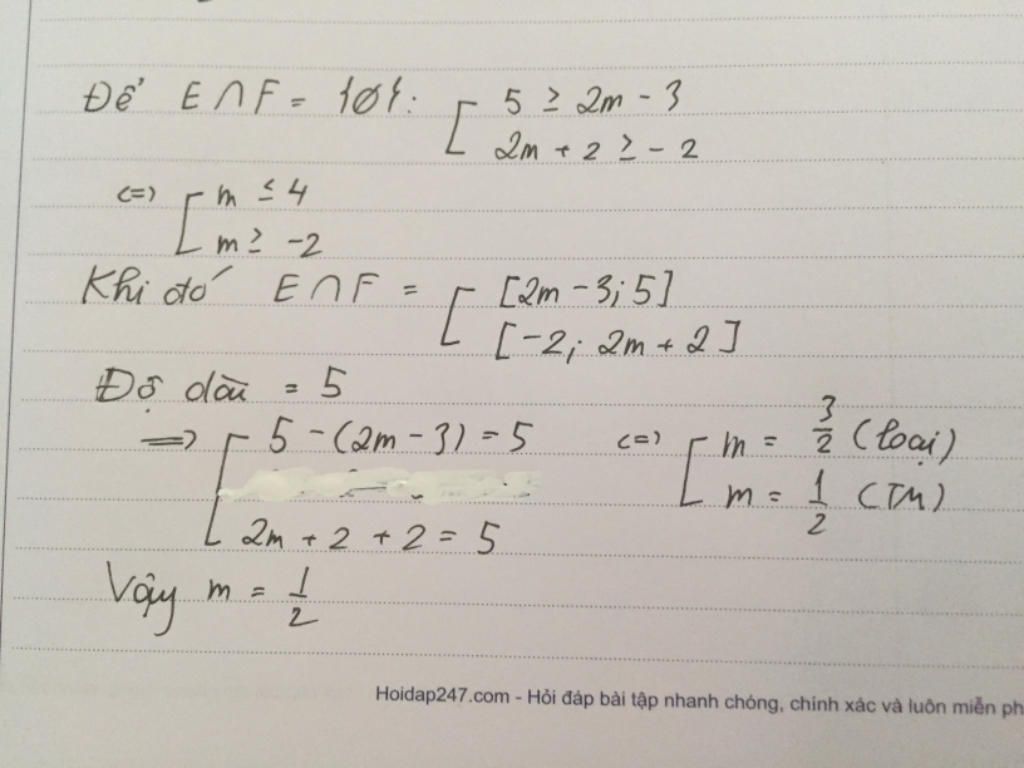 Để E ∩ F = {∅}: [ 5 ≥ 2m - 3
2m + 2 ≥ - 2
<=> [ m ≤ 4
m ≥ -2
Khi đó E ∩ F = [ [2m - 3; 5]
[-2; 2m + 2]
Độ dài = 5
=> [ 5 - (2m - 3) = 5 <=> [ m = 3/2 (loại)
m = 1/2 (TM)
2m + 2 + 2 = 5
Vậy m = 1/2
Hoidap247.com - Hỏi đáp bài tập nhanh chóng, chính xác và luôn miễn ph